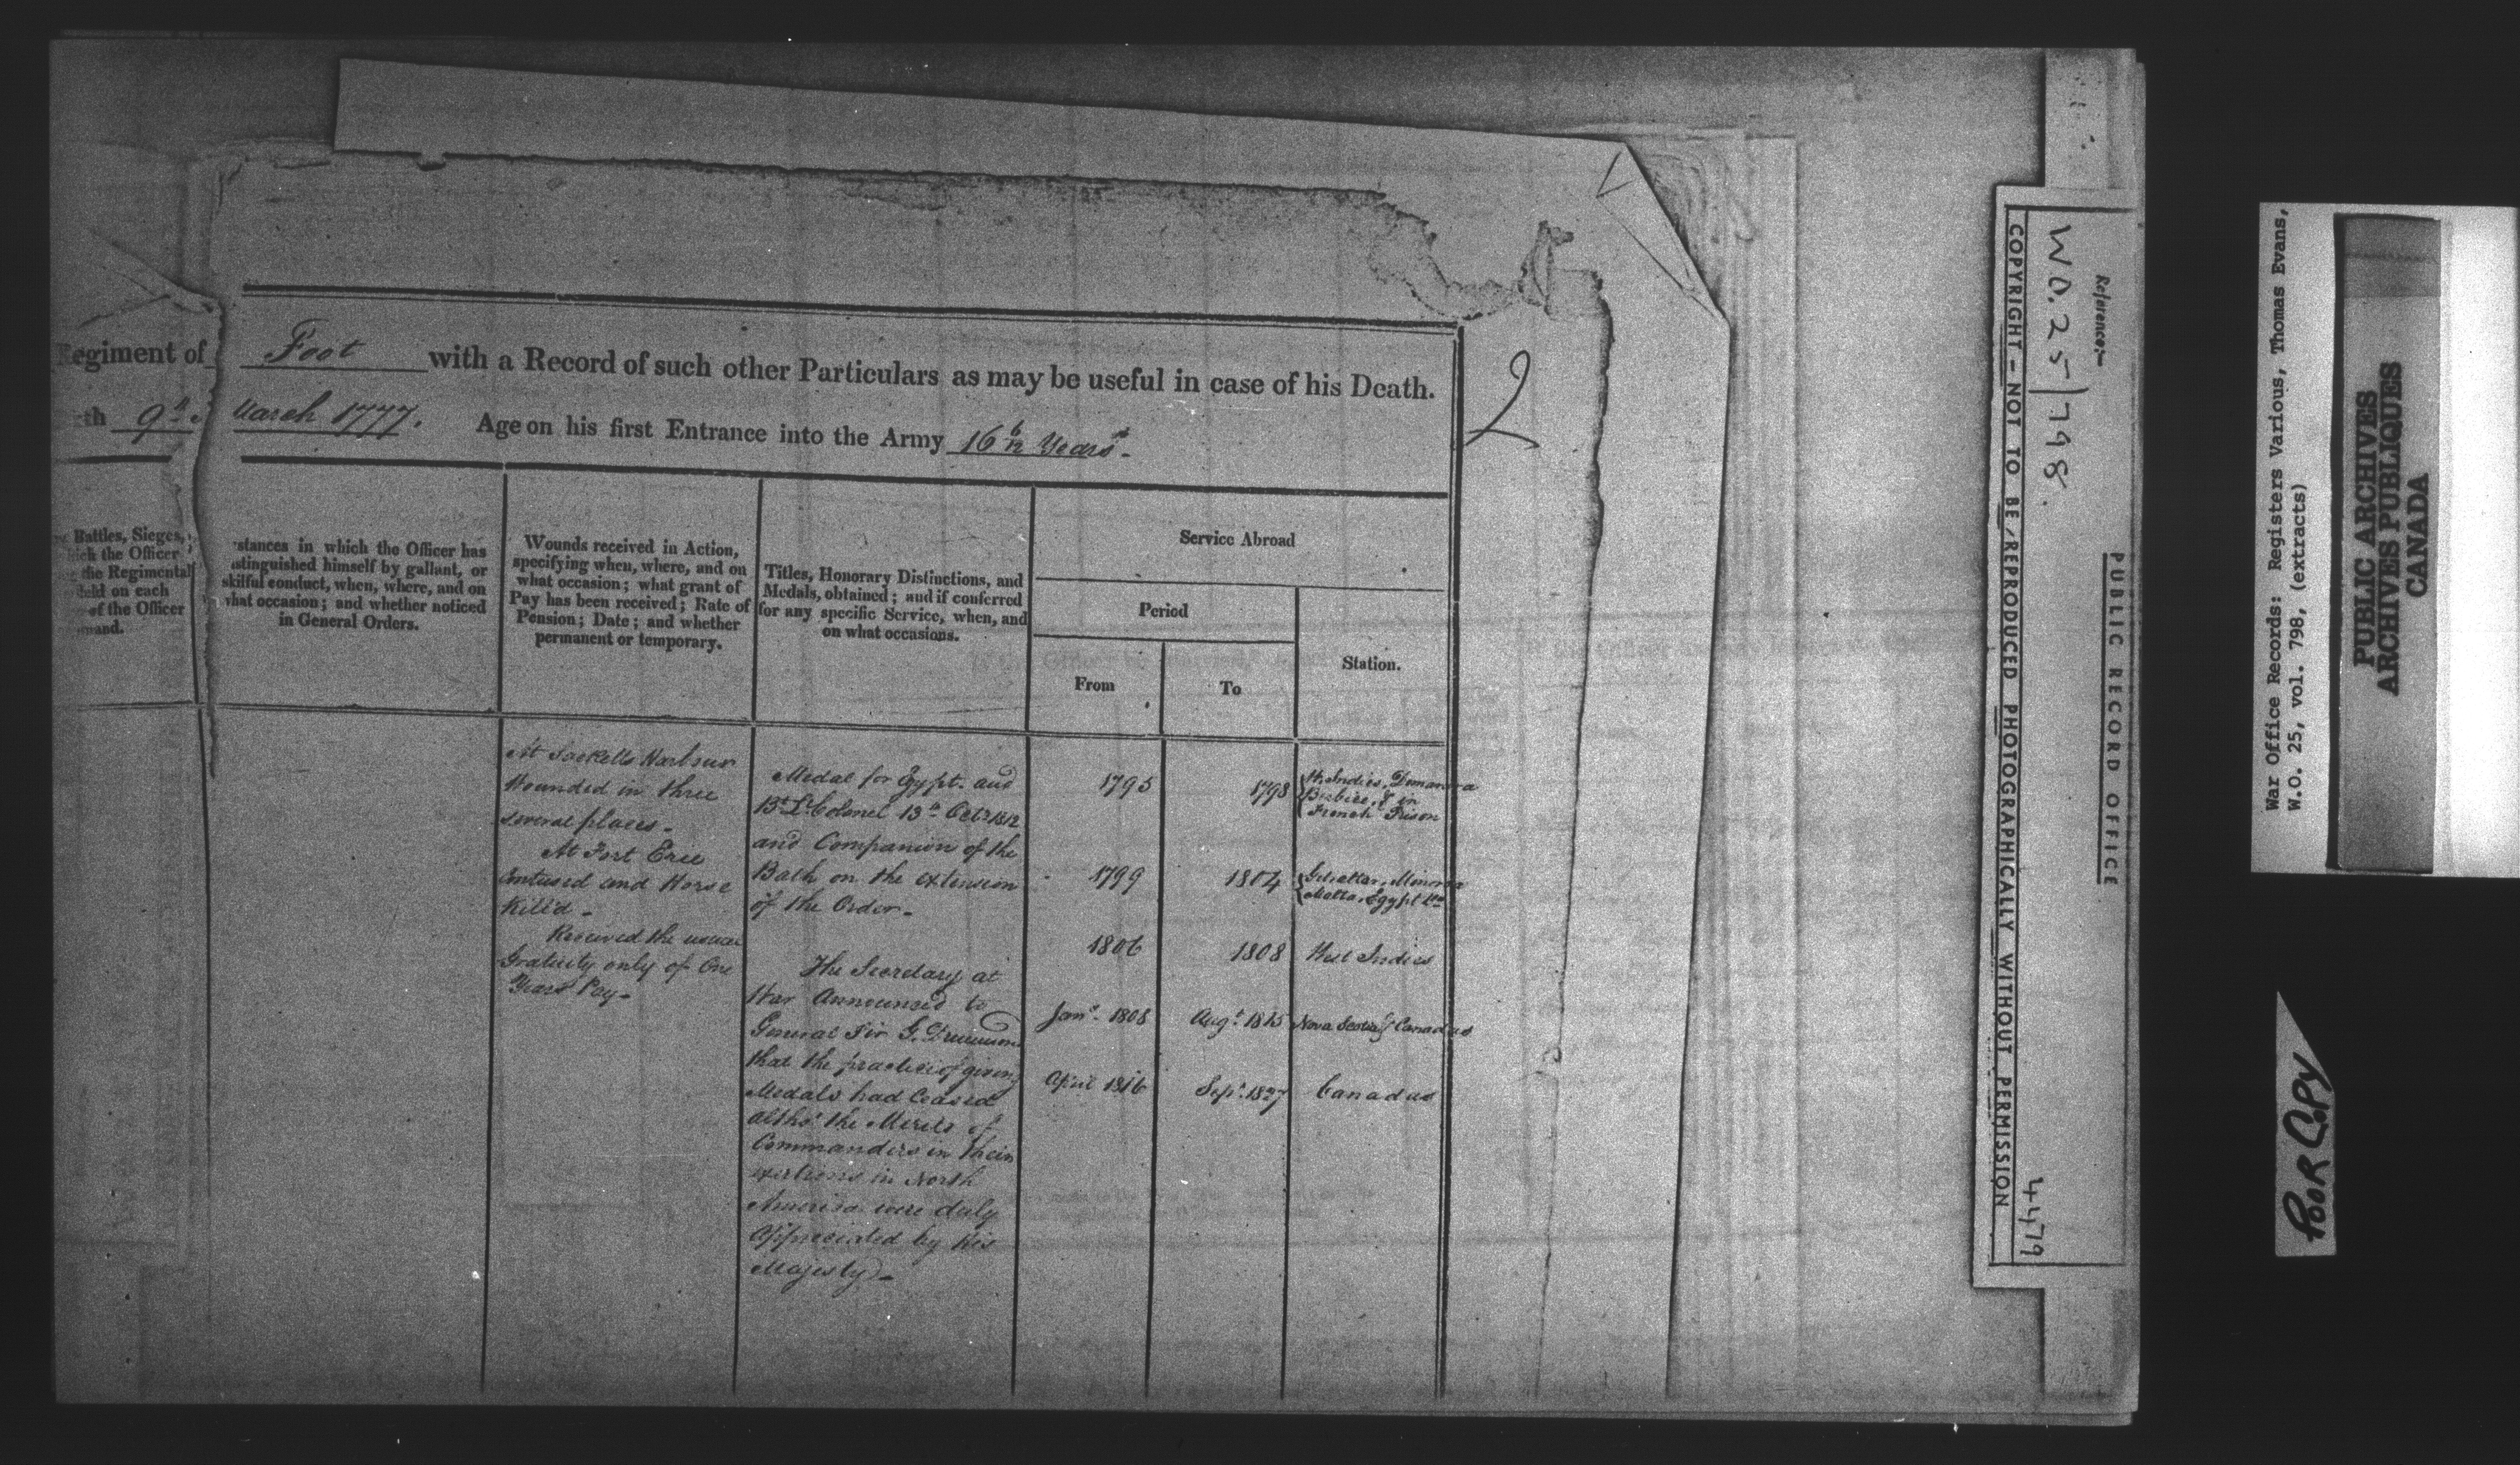 Regiment of Foot with a Record of such other Particulars as may be useful in case of his Death.
th 9th March 1777. Age on his first Entrance into the Army 16 6/12 Years.
2
Battles, Sieges,
the Officer
the Regimental
held on each
of the Officer
mand.
stances in which the Officer has
stinguished himself by gallant, or
skilful conduct, when, where, and on
what occasion; and whether noticed
in General Orders.
Wounds received in Action,
specifying when, where, and on
what occasion; what grant of
Pay has been received; Rate of
Pension; Date; and whether
permanent or temporary.
Titles, Honorary Distinctions, and
Medals, obtained; and if conferred
for any specific Service, when, and
on what occasions.
Service Abroad
Period
From
To
Station.
At Sacketts Harbour
Wounded in three
several places -
At Fort Erie
Contused and Horse
Kill'd -
Received the usual
Gratuity only of One
Years Pay -
Medal for Egypt. and
Bt. Lt. Colonel 13th Octr 1812
and Companion of the
Bath on the extension
of the Order -
The Secretary at
War Announced to
General Sir G. Drummond
that the practice of giving
Medals had Ceased
altho' the Merits of
Commanders in their
exertions in North
America were duly
Appreciated by His
Majesty -
1795 1798 W. Indies, Demarara
Berbice, & in
French Prison
1799 1804 Gibraltar, Minorca
Malta, Egypt &c
1806 1808 West Indies
Jany. 1808 Augt. 1815 Nova Scotia & Canadas
April 1816 Sept. 1827 Canadas
Reference:-
WO. 25/798.
PUBLIC RECORD OFFICE
COPYRIGHT - NOT TO BE REPRODUCED PHOTOGRAPHICALLY WITHOUT PERMISSION
4479
War Office Records: Registers Various, Thomas Evans,
W.O. 25, vol. 798, (extracts)
PUBLIC ARCHIVES
ARCHIVES PUBLIQUES
CANADA
POOR COPY